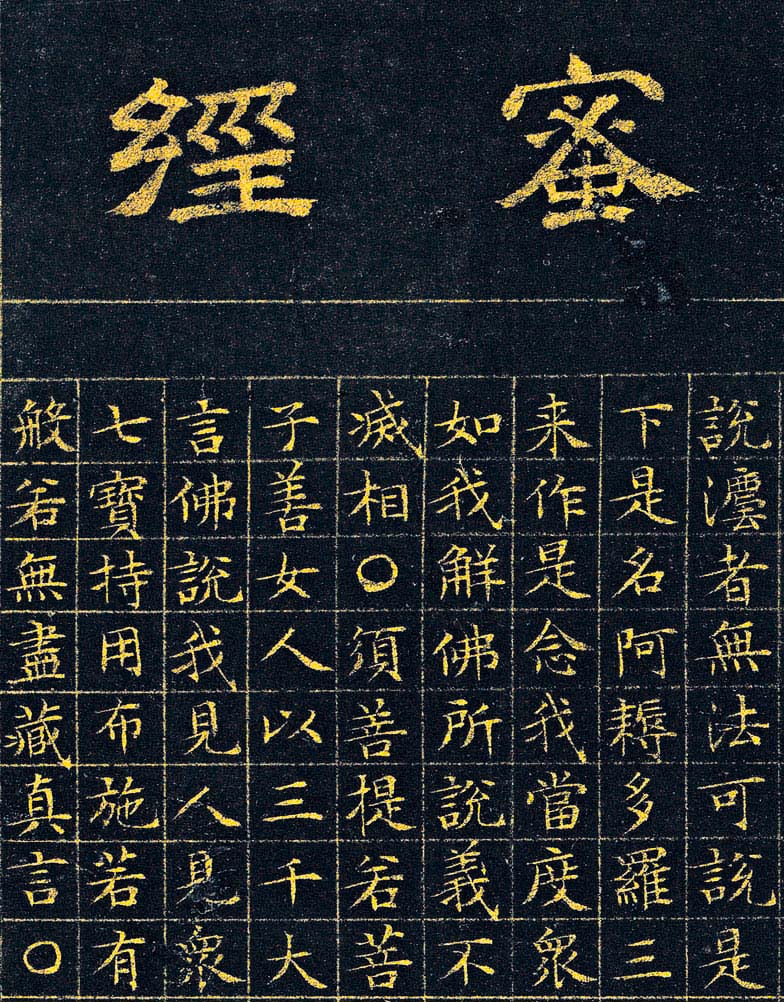 蜜經
說灋者無法可說是
下是名阿耨多羅三
来作是念我當度衆
如我解佛所說義不
滅相○須善提若菩
子善女人以三千大
言佛說我見人見衆
七寶持用布施若有
般若無盡藏真言○